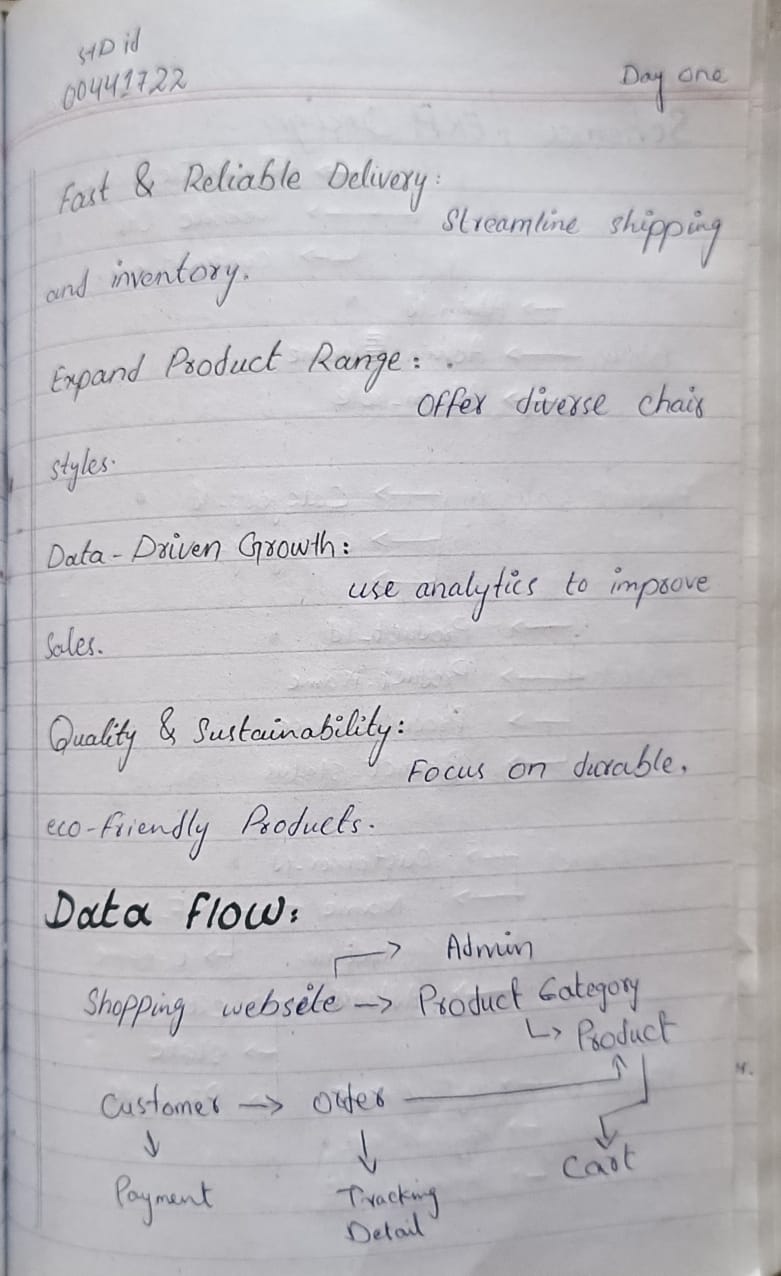 STD id
00441722
Day one
Fast & Reliable Delivery:
Streamline shipping
and inventory.
Expand Product Range:
Offer diverse chair
styles.
Data-Driven Growth:
use analytics to improve
Sales.
Quality & Sustainability:
Focus on durable,
eco-friendly Products.
Data Flow:
Admin
Shopping website → Product Category
↳ Product
Customer → Order
Cart
Payment
Tracking
Detail